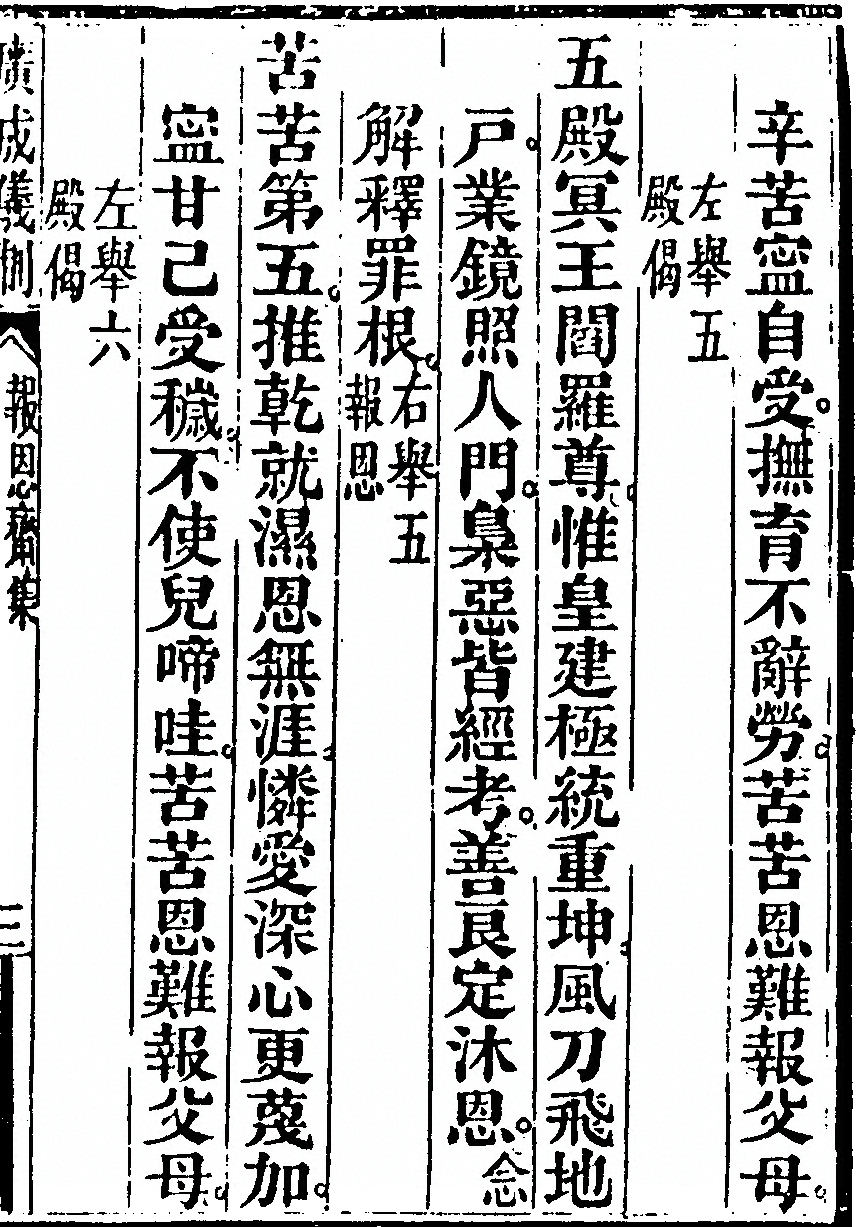 辛苦寍自受。撫育不辭勞。苦苦恩難報父母。
左舉五
殿偈
五殿冥王閻羅尊。惟皇建極統重坤。風刀飛地
戶。業鏡照人門。梟惡皆經考。善良定沐恩。念
解釋罪根。右舉五
報恩
苦苦第五。推乾就濕恩無涯。憐愛深心更蔑加。
寍甘己受穢。不使兒啼哇。苦苦恩難報父母。
左舉六
殿偈
廣成儀制
報恩齋集
三